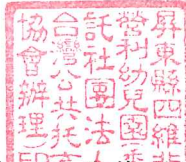 屏東縣四維非
營利幼兒園委
託社團法人
台灣公共托育
協會辦理